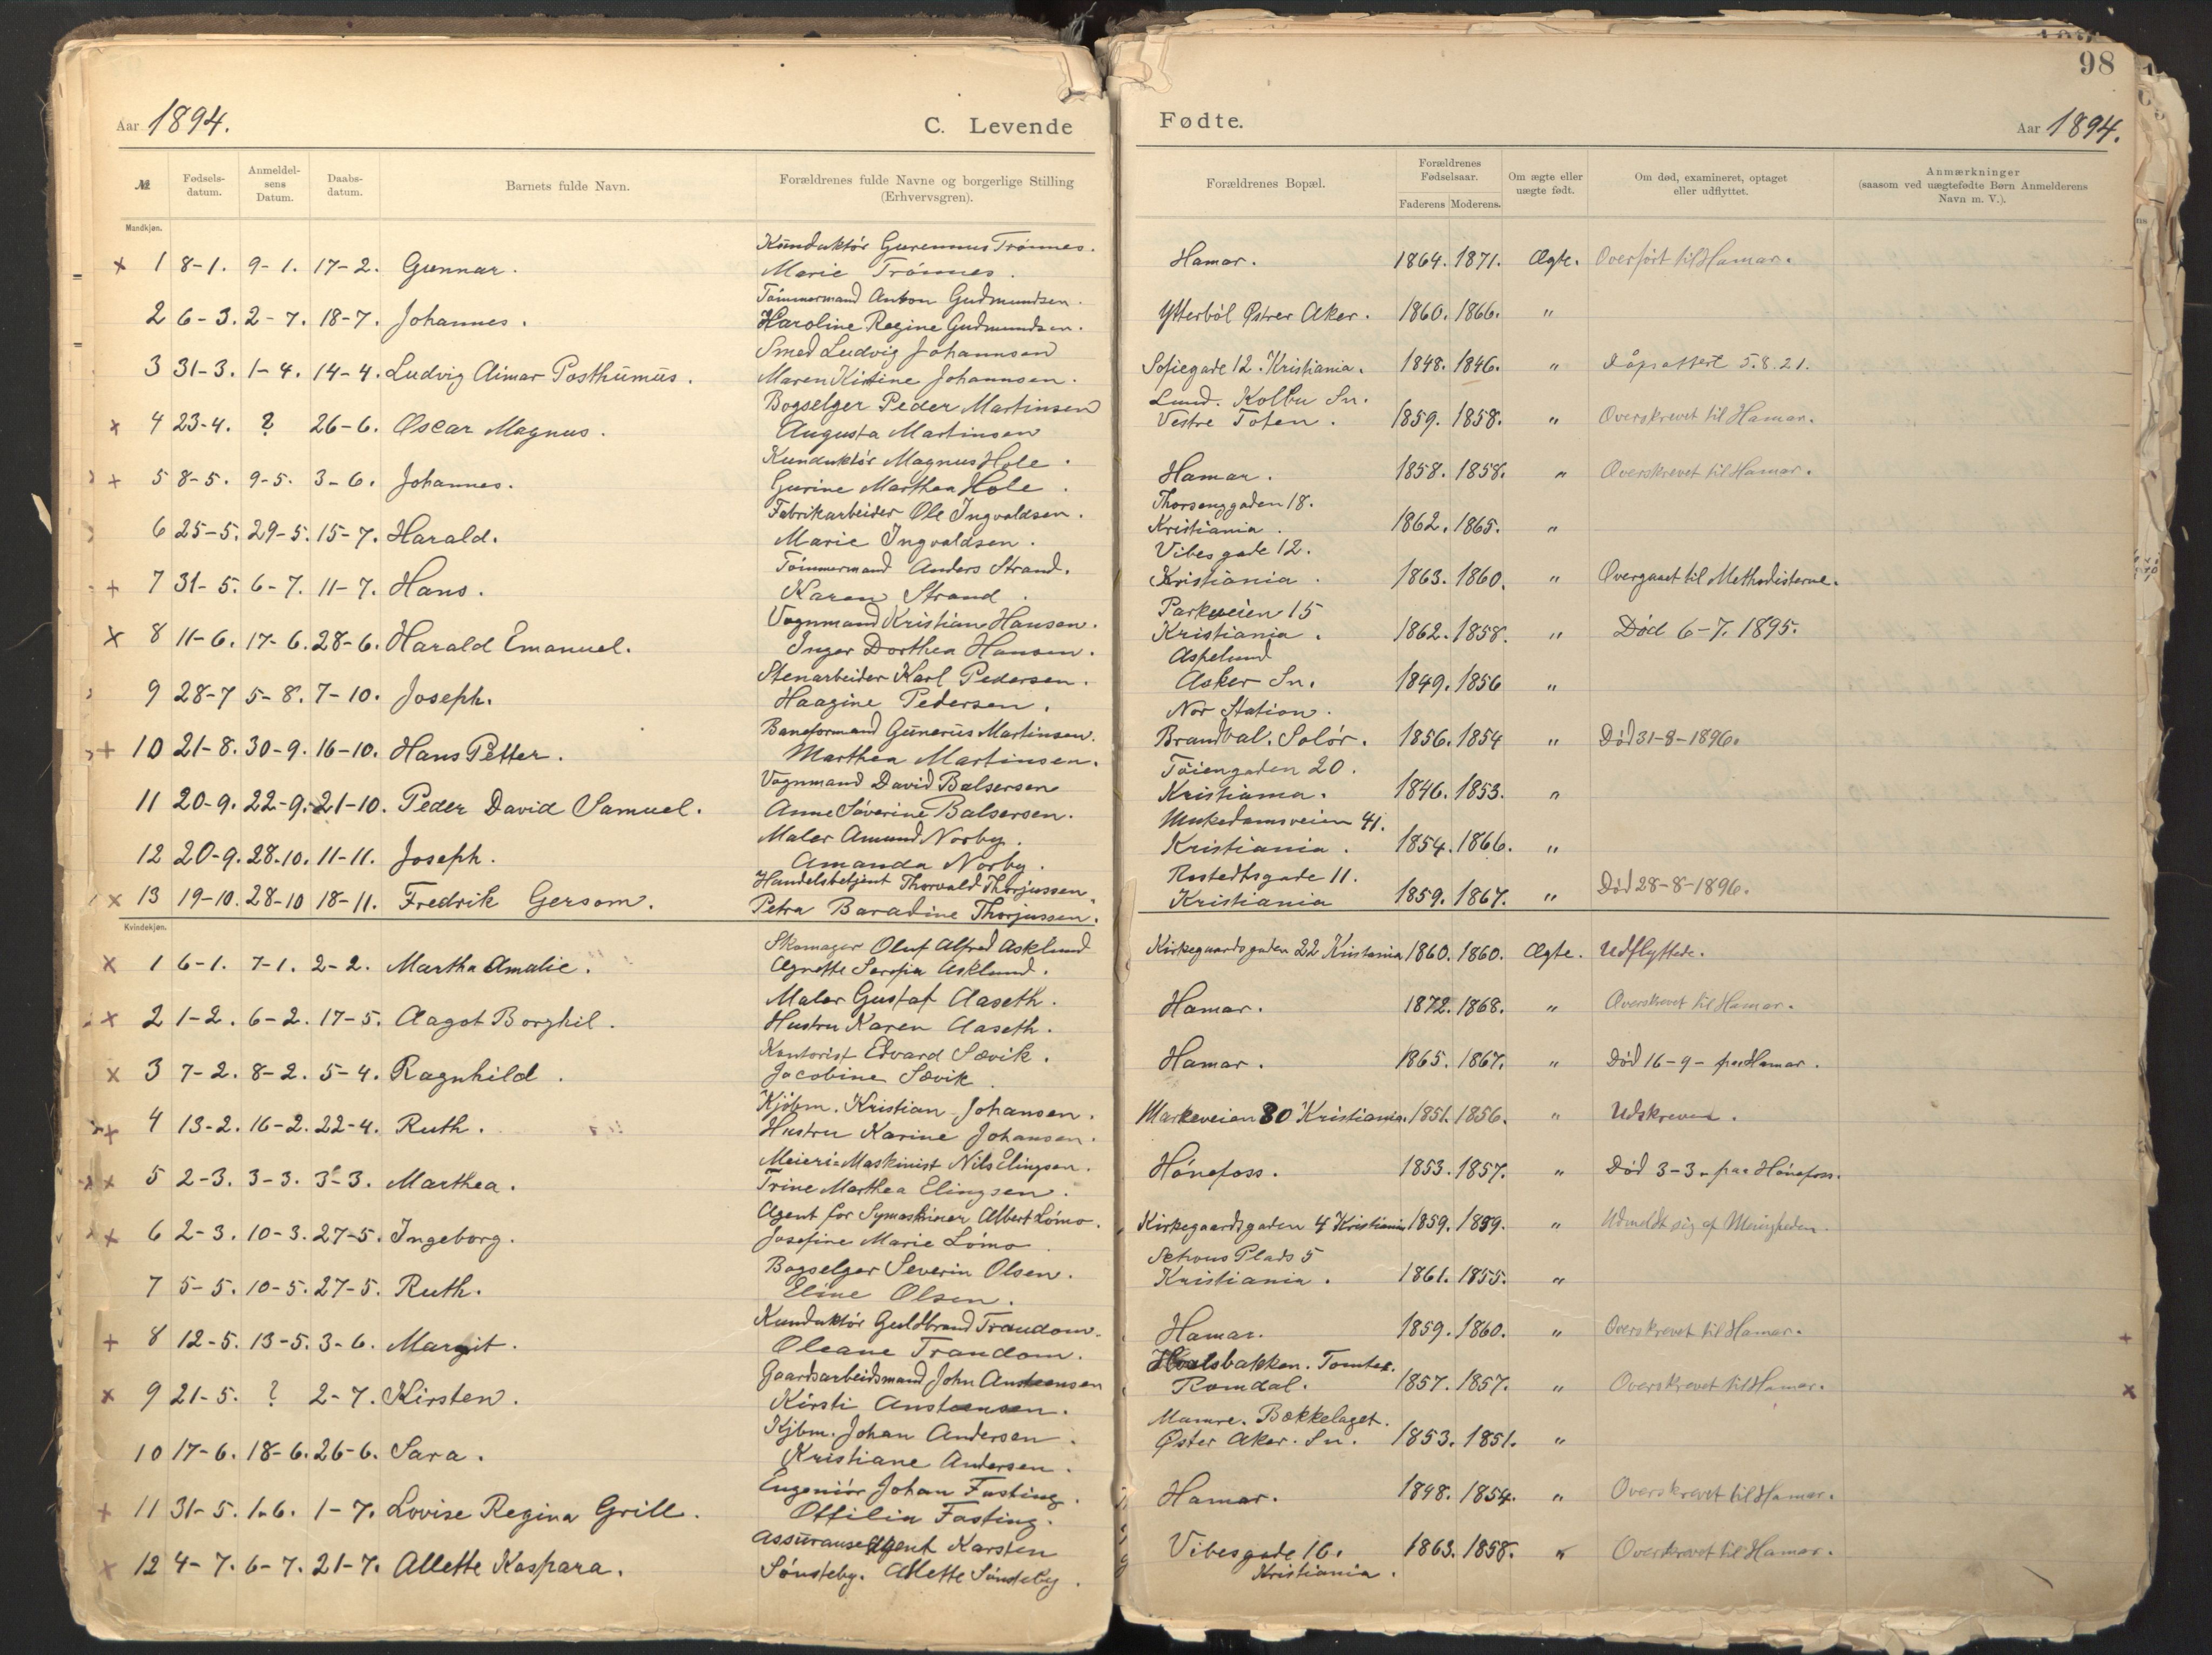 98
Aar 1894.
C. Levende
Fødte.
Aar 1894.
№
Fødsels-
datum.
Anmeldel-
sens
Datum.
Daabs-
datum.
Barnets fulde Navn.
Forældrenes fulde Navne og borgerlige Stilling
(Erhvervsgren).
Forældrenes Bopæl.
Forældrenes
Fødselsaar.
Faderens
Moderens.
Om ægte eller
uægte født.
Om død, examineret, optaget
eller udflyttet.
Anmærkninger
(saasom ved uægtefødte Børn Anmelderens
Navn m. V.).
Mandkjøn.
Kunduktör Gurennus Trönnes.
× 1 8-1. 9-1. 17-2. Gunnar. Marie Trönnes. Hamar. 1864. 1871. Ægte. Overfört til Hamar.
Tömmermand Anton Gudmundsen.
2 6-3. 2-7. 18-7. Johannes. Karoline Regine Gudmundsen. Ytterböl Østrer Aker. 1860. 1866. "
Smed Ludvig Johannsen
3 31-3. 1-4. 14-4. Ludvig Aimar Posthumus. Maren Kirstine Johannsen. Sofiegade 12. Kristiania. 1848. 1846. " Dåpsattest 5.8.21.
Bogselger Peder Martinsen Lund. Kolbu Sn.
× 4 23-4. ? 26-6. Oscar Magnus. Augusta Martinsen Vestre Toten. 1859. 1858. " Overskrevet til Hamar.
Kunduktör Magnus Hole.
+ 5 8-5. 9-5. 3-6. Johannes. Gurine Marthea Hole. Hamar. 1858. 1858. " Overskrevet til Hamar.
Fabrikarbeider Ole Ingvaldsen. Thorsenggaden 18.
6 25-5. 29-5. 15-7. Harald. Marie Ingvaldsen. Kristiania. 1862. 1865. "
Tömmermand Anders Strand. Vibesgade 12.
+ 7 31-5. 6-7. 11-7. Hans. Karen Strand. Kristiania. 1863. 1860. " Overgaaet til Methodisterne.
Vognmand Kristian Hansen. Parkveien 15
× 8 11-6. 17-6. 28-6. Harald Emanuel. Inger Dorthea Hansen. Kristiania. 1862. 1858. " Död 6-7. 1895.
Stenarbeider Karl Pedersen. Aspelund
9 28-7 5-8. 7-10. Joseph. Haagine Pedersen. Asker Sn. 1849. 1856 "
Baneformand Gunerius Martinsen. Nor Station.
+ 10 21-8. 30-9. 16-10. Hans Petter. Marthea Martinsen. Brandval. Solör. 1856. 1854 " Död 31-8-1896.
Vognmand David Balsersen Töiengaden 20.
11 20-9. 22-9. 21-10. Peder David Samuel. Anne Söverine Balsersen. Kristiania. 1846. 1853. "
Maler Amund Norby. Munkedamsveien 41.
12 20-9. 28-10. 11-11. Joseph. Amanda Norby. Kristiania. 1854. 1866. "
Handelsbetjent Thorvald Thorjussen Rostedtsgade 11.
× 13 19-10. 28-10 18-11. Fredrik Gersom. Petra Baradine Thorjussen. Kristiania 1859. 1867. " Död 28-8-1896.
Kvindekjøn.
Skomager Oluf Alfred Asklund
× 1 6-1. 7-1. 2-2. Martha Amalie. Agnette Serefia Asklund. Kirkegaardsgaden 22 Kristania 1860. 1860. Ægte. Udflyttede.
Maler Gustaf Aaseth.
× 2 1-2. 6-2. 17-5. Aagot Borghil. Hustru Karen Aaseth. Hamar. 1872. 1868. " Overskrevet til Hamar.
Kontorist Edvard Sævik.
× 3 7-2. 8-2. 5-4. Ragnhild. Jacobine Sævik Hamar. 1865. 1867. " Död 16-9- paa Hamar.
Kjöbm. Kristian Johansen.
+ 4 13-2. 16-2. 22-4. Ruth. Hustru Karine Johansen. Markeveien 30 Kristiania. 1851. 1856. " Udskreven.
Meieri-Maskinist Nils Elingsen.
× 5 2-3. 3-3. 3-3. Marthea. Trine Marthea Elingsen. Hönefoss. 1853. 1857. " Död 3-3- paa Hönefoss.
Agent for Symaskiner Albert Lömo.
+ 6 2-3. 10-3. 27-5. Ingeborg. Josefine Marie Lömo. Kirkegaardsgaden 4 Kristiania 1859. 1859. " Udmeldt sig af Menigheden.
Bogselger Severin Olsen. Schous Plads 5
7 5-5. 10-5. 27-5. Ruth. Eline Olsen. Kristiania. 1861. 1855. "
Kunduktör Guldbrand Trandom.
+ 8 12-5. 13-5. 3-6. Margit. Oleane Trandom. Hamar. 1859. 1860. " Overskrevet til Hamar. +
Gaardsarbeidsmand John Austeensen Hvalsbakken. Tomter.
× 9 21-5. ? 2-7. Kirsten. Kirsti Austeensen. Romdal. 1857. 1857. " Overskrevet til Hamar. ×
Kjbm. Johan Andersen. Mamre. Bækkelaget.
10 17-6. 18-6. 26-6. Sara. Kristiane Andersen. Øster Aker. Sn. 1853. 1851. "
Engeniör Johan Fasting.
+ 11 31-5. 1-6. 1-7. Lovise Regina Grill. Ottilia Fasting. Hamar. 1848. 1854. " Overskrevet til Hamar.
Assuranseagent Karsten
× 12 4-7. 6-7. 21-7. Allette Kaspara. Sönsteby. Allette Sönsteby. Vibesgade 16. 1863. 1858. " Overskrevet til Hamar.
Kristiania.